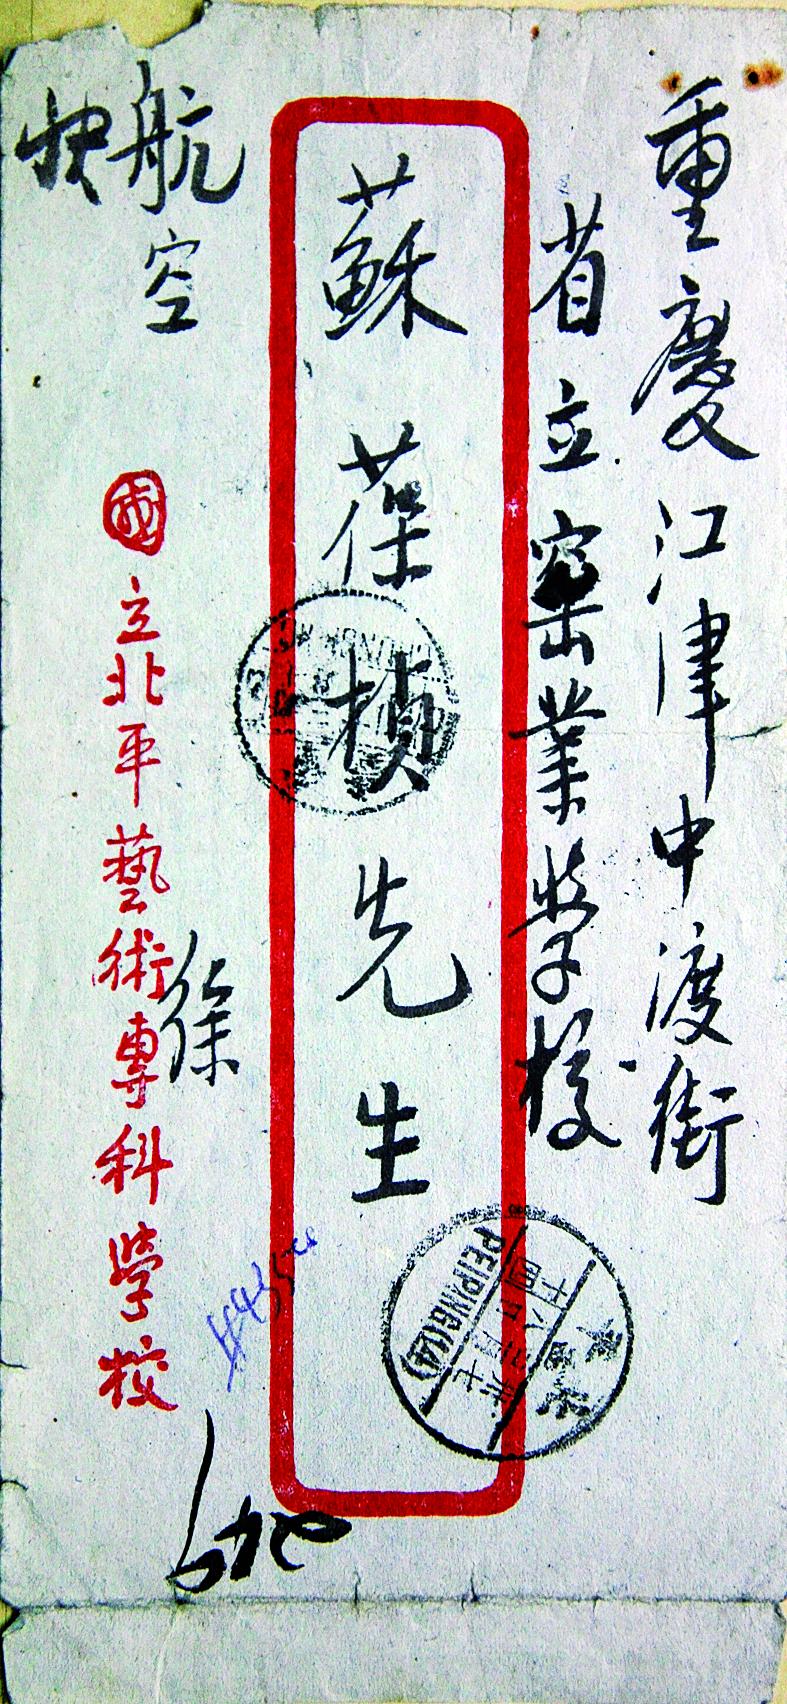 重慶江津中渡街
省立窰業學校
蘇葆楨先生
航空
快
國立北平藝術專科學校
徐
PEIPING(14)